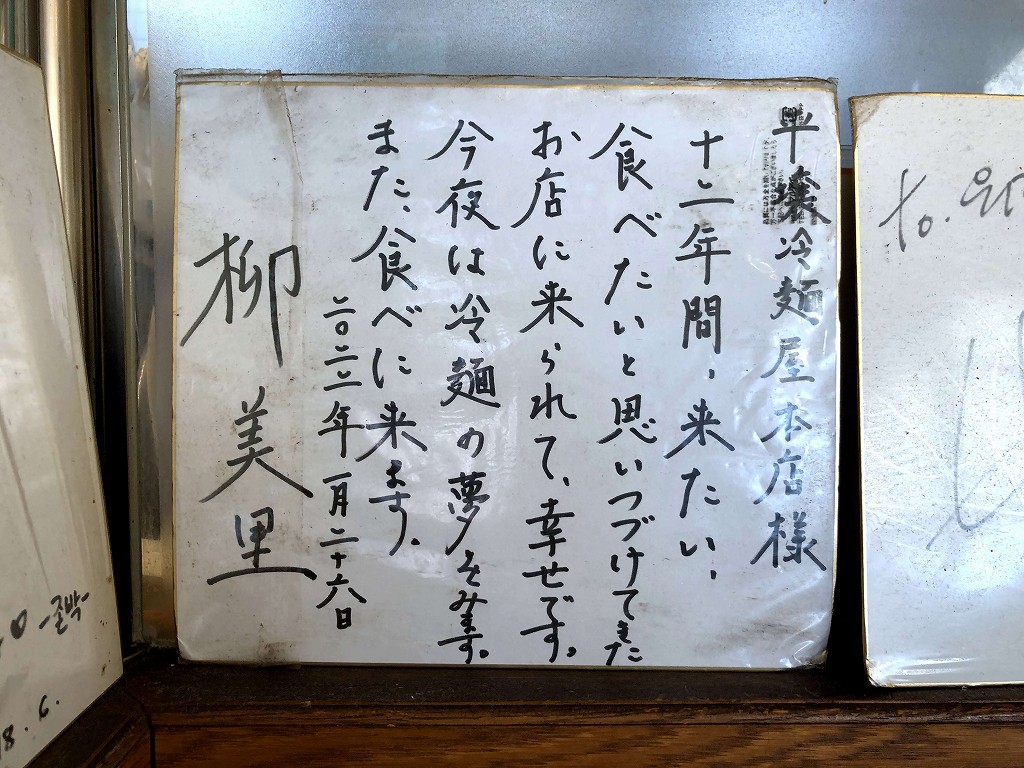 平壌冷麺屋本店様
十二年間、来たい、
食べたいと思いつづけてきた
お店に来られて、幸せです。
今夜は冷麺の夢をみます。
また、食べに来ます。
二〇二二年一月二十六日
柳美里
to.
-굴박-
8.6.